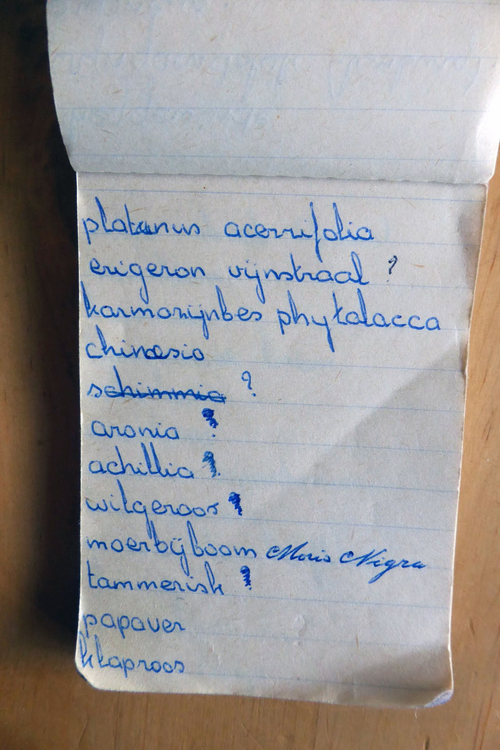 platanus acerrifolia
erigeron vijnstraal ?
karmozijnbes phytalacca
chinesio
schimmia ?
aronia ?
achillia ?
wilgeroos ?
moerbijboom Moris Nigra
tammerisk ?
papaver
klaproos